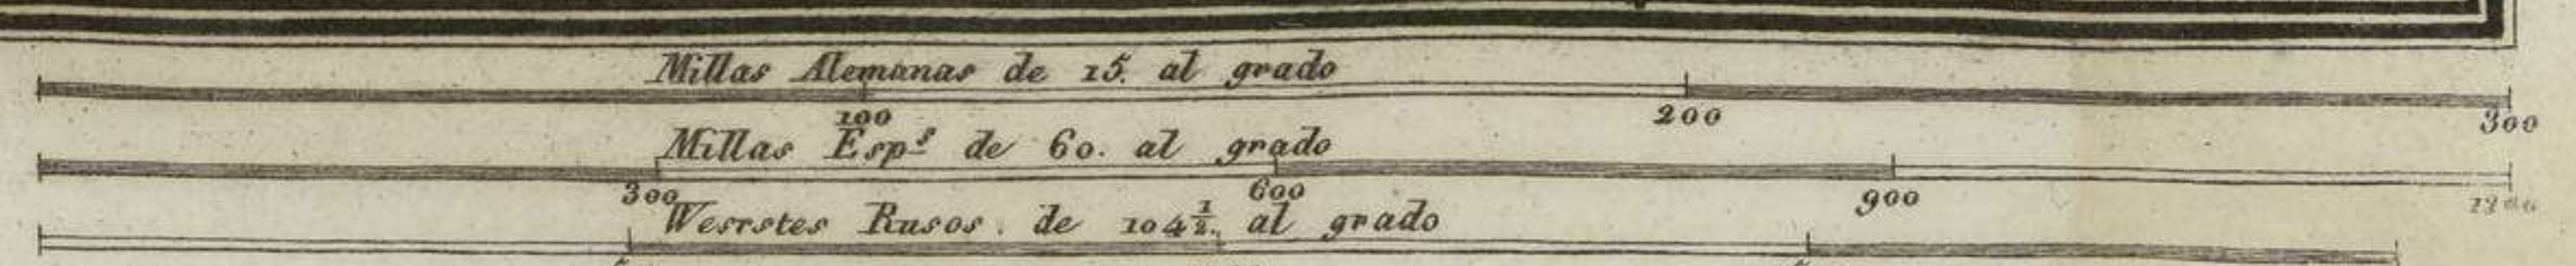 Millas Alemanas de 15. al grado
100 200 300
Millas Esp.s de 60. al grado
300 600 900
Werstes Rusos. de 104 1/2. al grado